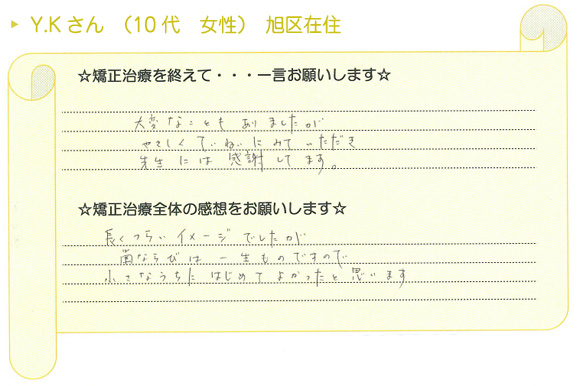 ▶ Y.Kさん （10代 女性） 旭区在住
☆矯正治療を終えて・・・一言お願いします☆
大変なこともありましたが
やさしくていねいにみていただき
先生には感謝してます。
☆矯正治療全体の感想をお願いします☆
長くつらいイメージでしたが
歯ならびは一生ものですので
小さなうちにはじめてよかったと思います